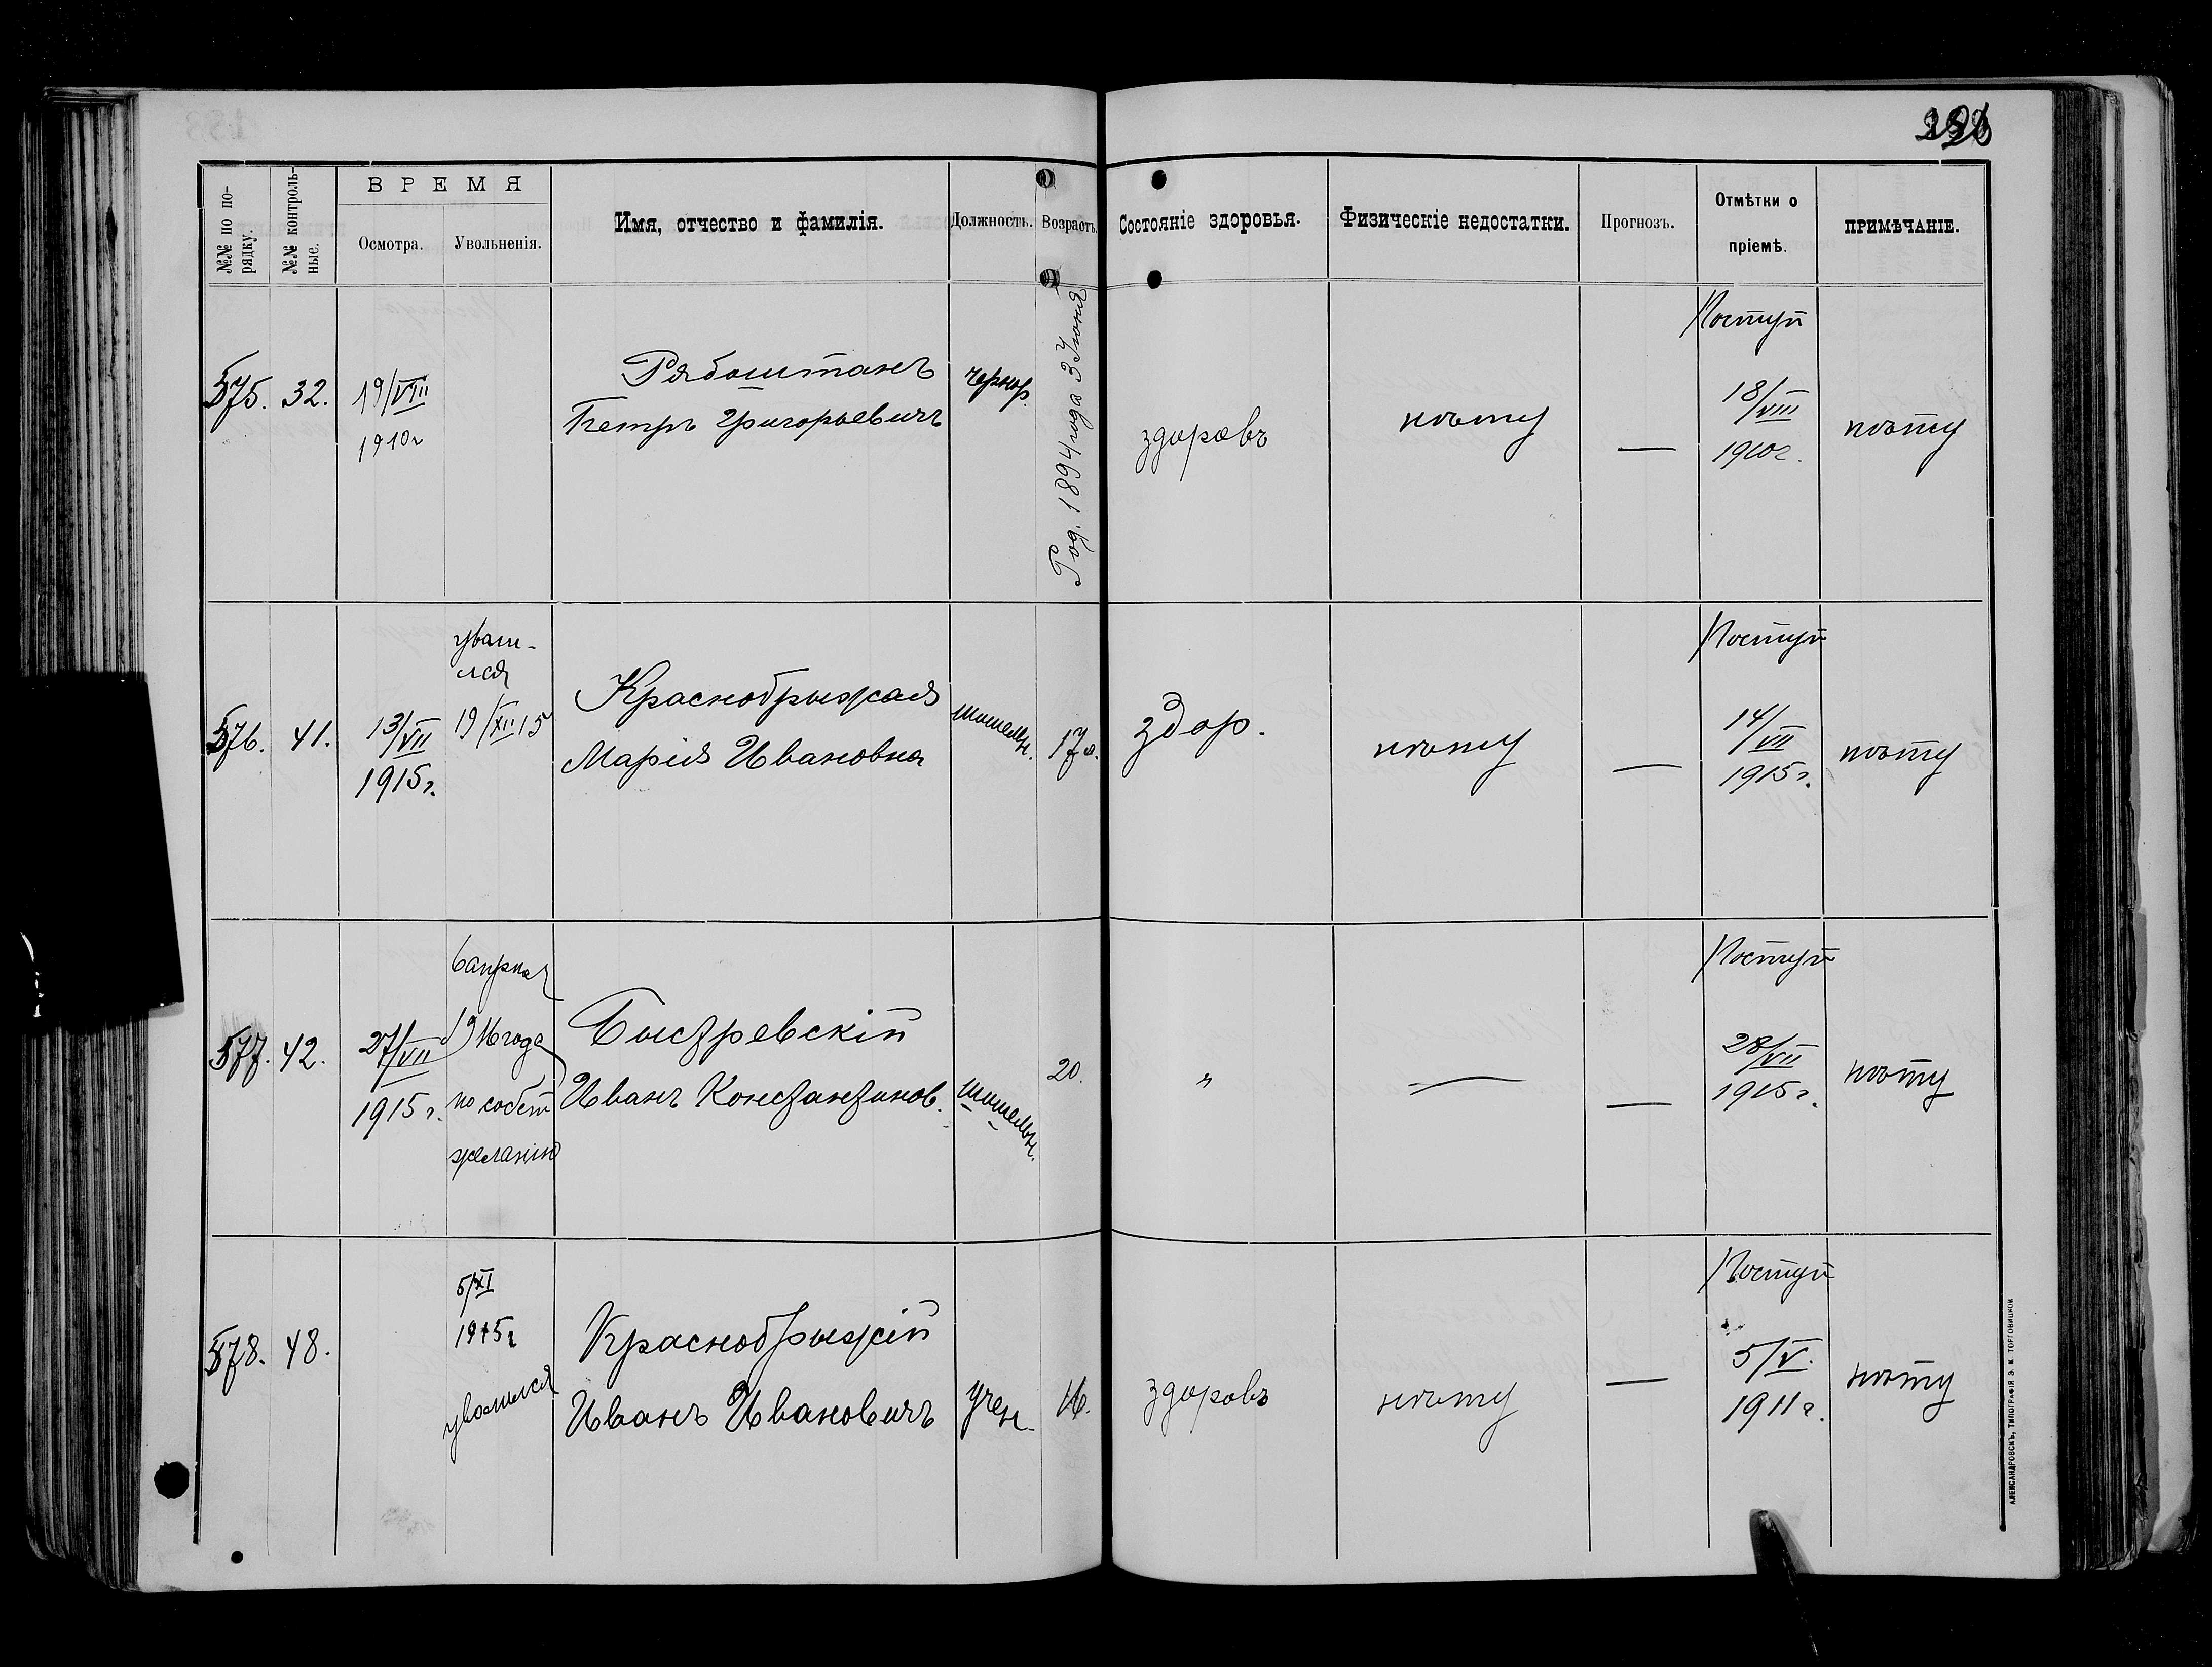 №№ по по-
рядку.
№№ контроль-
ные.
ВРЕМЯ
Осмотра.
Увольненія.
Имя, отчество и фамилія.
Должность.
Возрастъ.
Состояніе здоровья.
Физическіе недостатки.
Прогнозъ.
Отмѣтки о
пріемѣ.
ПРИМѢЧАНІЕ.
575.
32.
19/VIII
1910г
Рябоштанъ
Петръ Григорьевичъ
чернор.
Род. 1894 года 3 Іюня
здоровъ
нѣту
—
Поступ
18/VIII
1910г.
нѣту
576.
41.
13/VII
1915г.
19/XII 15
Краснобрыжая
Марія Ивановна
17
здор.
нѣту
—
Поступ
14/VII
1915г.
нѣту
577.
42.
27/VII
1915г.
6 апрѣля
1916 года
по собст
желанію
Быстревскій
Иванъ Константинов.
20.
"
—
—
Поступ
28/VII
1915г.
нѣту
578.
48.
5/XI
1915г
уволился
Краснобрыжій
Иванъ Ивановичъ
учен.
16.
здоровъ
нѣту
—
Поступ
5/V.
1911г.
нѣту
АЛЕКСАНДРОВСКЪ, ТИПОГРАФІЯ Э. М. ТОРГОВИЦКОЙ